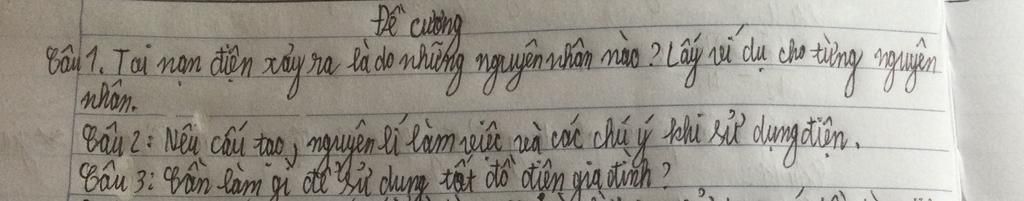 Đề cương
Câu 1. Tai nạn điện xảy ra là do những nguyên nhân nào? Lấy ví dụ cho từng nguyên
nhân.
Câu 2: Nêu cấu tạo, nguyên lí làm việc và các chú ý khi sử dụng điện.
Câu 3: Cần làm gì để sử dụng tốt đồ điện gia đình?